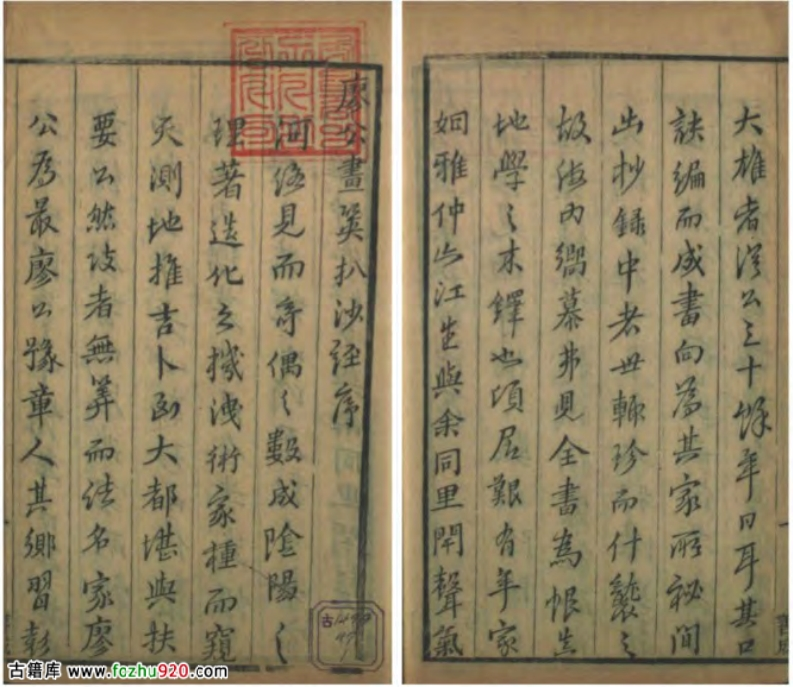 廖公畫筴扒沙經序
河洛見而奇偶之數成陰陽之
理著造化之機洩術家種而窺
天測地推吉卜凶大都堪與扶
要公然攻者無筭而名家廖
公爲最廖公豫章人其鄉習彭
大雄者從公三十餘年日耳其口
訣編而成書向爲其家所祕間
出抄録中者世輒珍而什襲之
故海内嚮慕弗見全書為恨
地學之木鐸也頃居艱有年家
姻雅仲山江生與余同里閈聲氣
古籍库 www.fozhu920.com